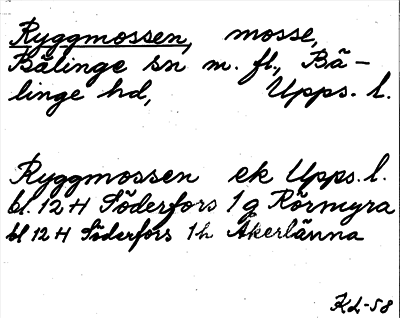 Ryggmossen, mosse,
Bälinge sn m. fl., Bä-
linge hd, Upps. l.
Ryggmossen ek Upps. l.
bl. 12 H Söderfors 1 g Rörmyra
bl 12 H Söderfors 1 h Åkerlänna
Kd-58